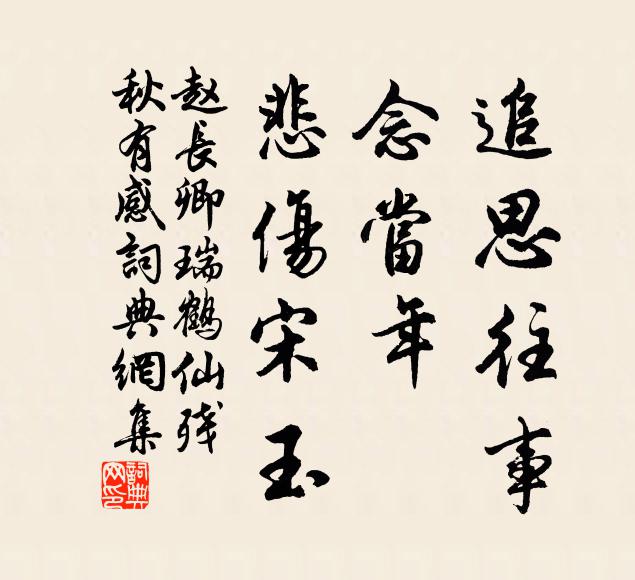 追思往事
念當年
悲傷宋玉
赵長卿瑞鶴仙残
秋有感詞典網集
詞典網印